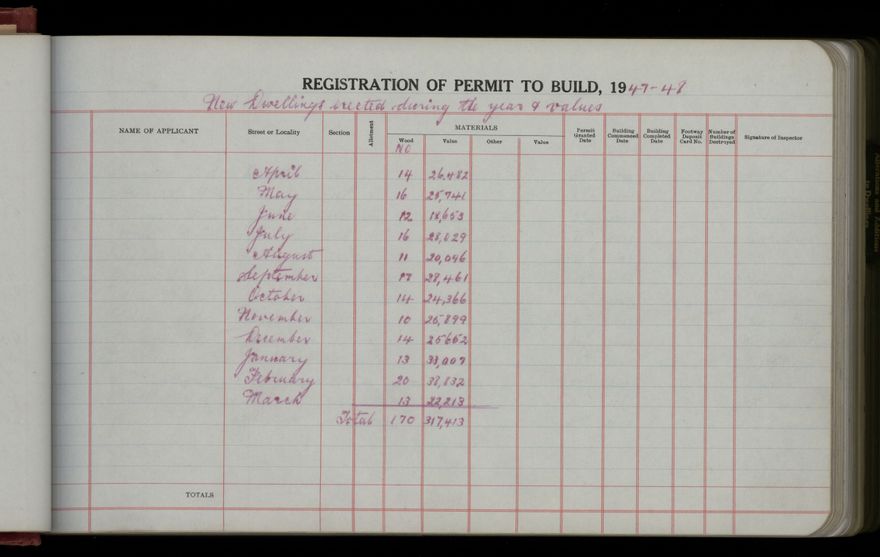 REGISTRATION OF PERMIT TO BUILD, 1947-48
New Dwellings erected during the year & values
NAME OF APPLICANT Street or Locality Section Allotment MATERIALS Permit Granted Date Building Commenced Date Building Completed Date Footway Deposit Card No. Number of Buildings Destroyed Signature of Inspector
Wood Value Other Value
No
April 14 26,482
May 16 25,741
June 12 18,653
July 16
August 11 20,046
September 17 28,461
October 14 24,366
November 10 25,899
December 14 25652
January 13 33,009
February 20 38,832
March 13 22,213
Total 170 317,413
TOTALS